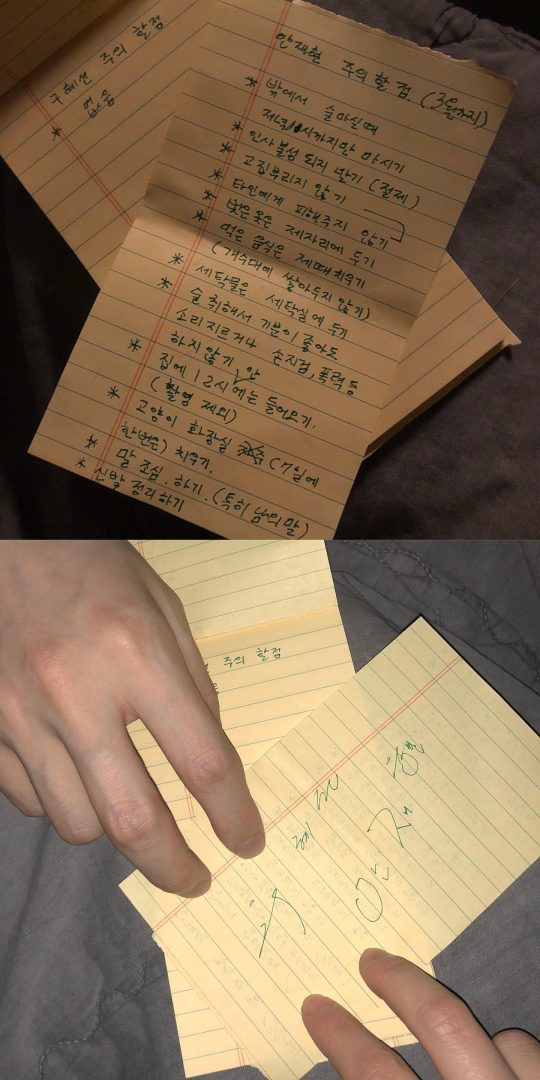 구혜선 주의 할점
* 없음
안재현 주의 할 점. (3월까지)
* 밖에서 술마실때
저녁 11시까지만 마시기
* 인사불성 되지 말기 (절제)
* 고집부리지 않기
* 타인에게 피해주지 않기
* 벗은 옷은 제자리에 두기
* 먹은 음식은 제때 치우기
(개수대에 쌓아두지 않기)
* 세탁물은 세탁실에 두기
* 술 취해서 기분이 좋아도
소리지르거나 손지검, 폭력등
하지않기 안
* 집에 12시에는 들어오기.
(촬영 제외)
* 고양이 화장실 (7일에
한번은) 치우기.
* 말 조심. 하기. (특히 남의 말)
* 신발 정리하기
주의 할점
구혜선
안재현